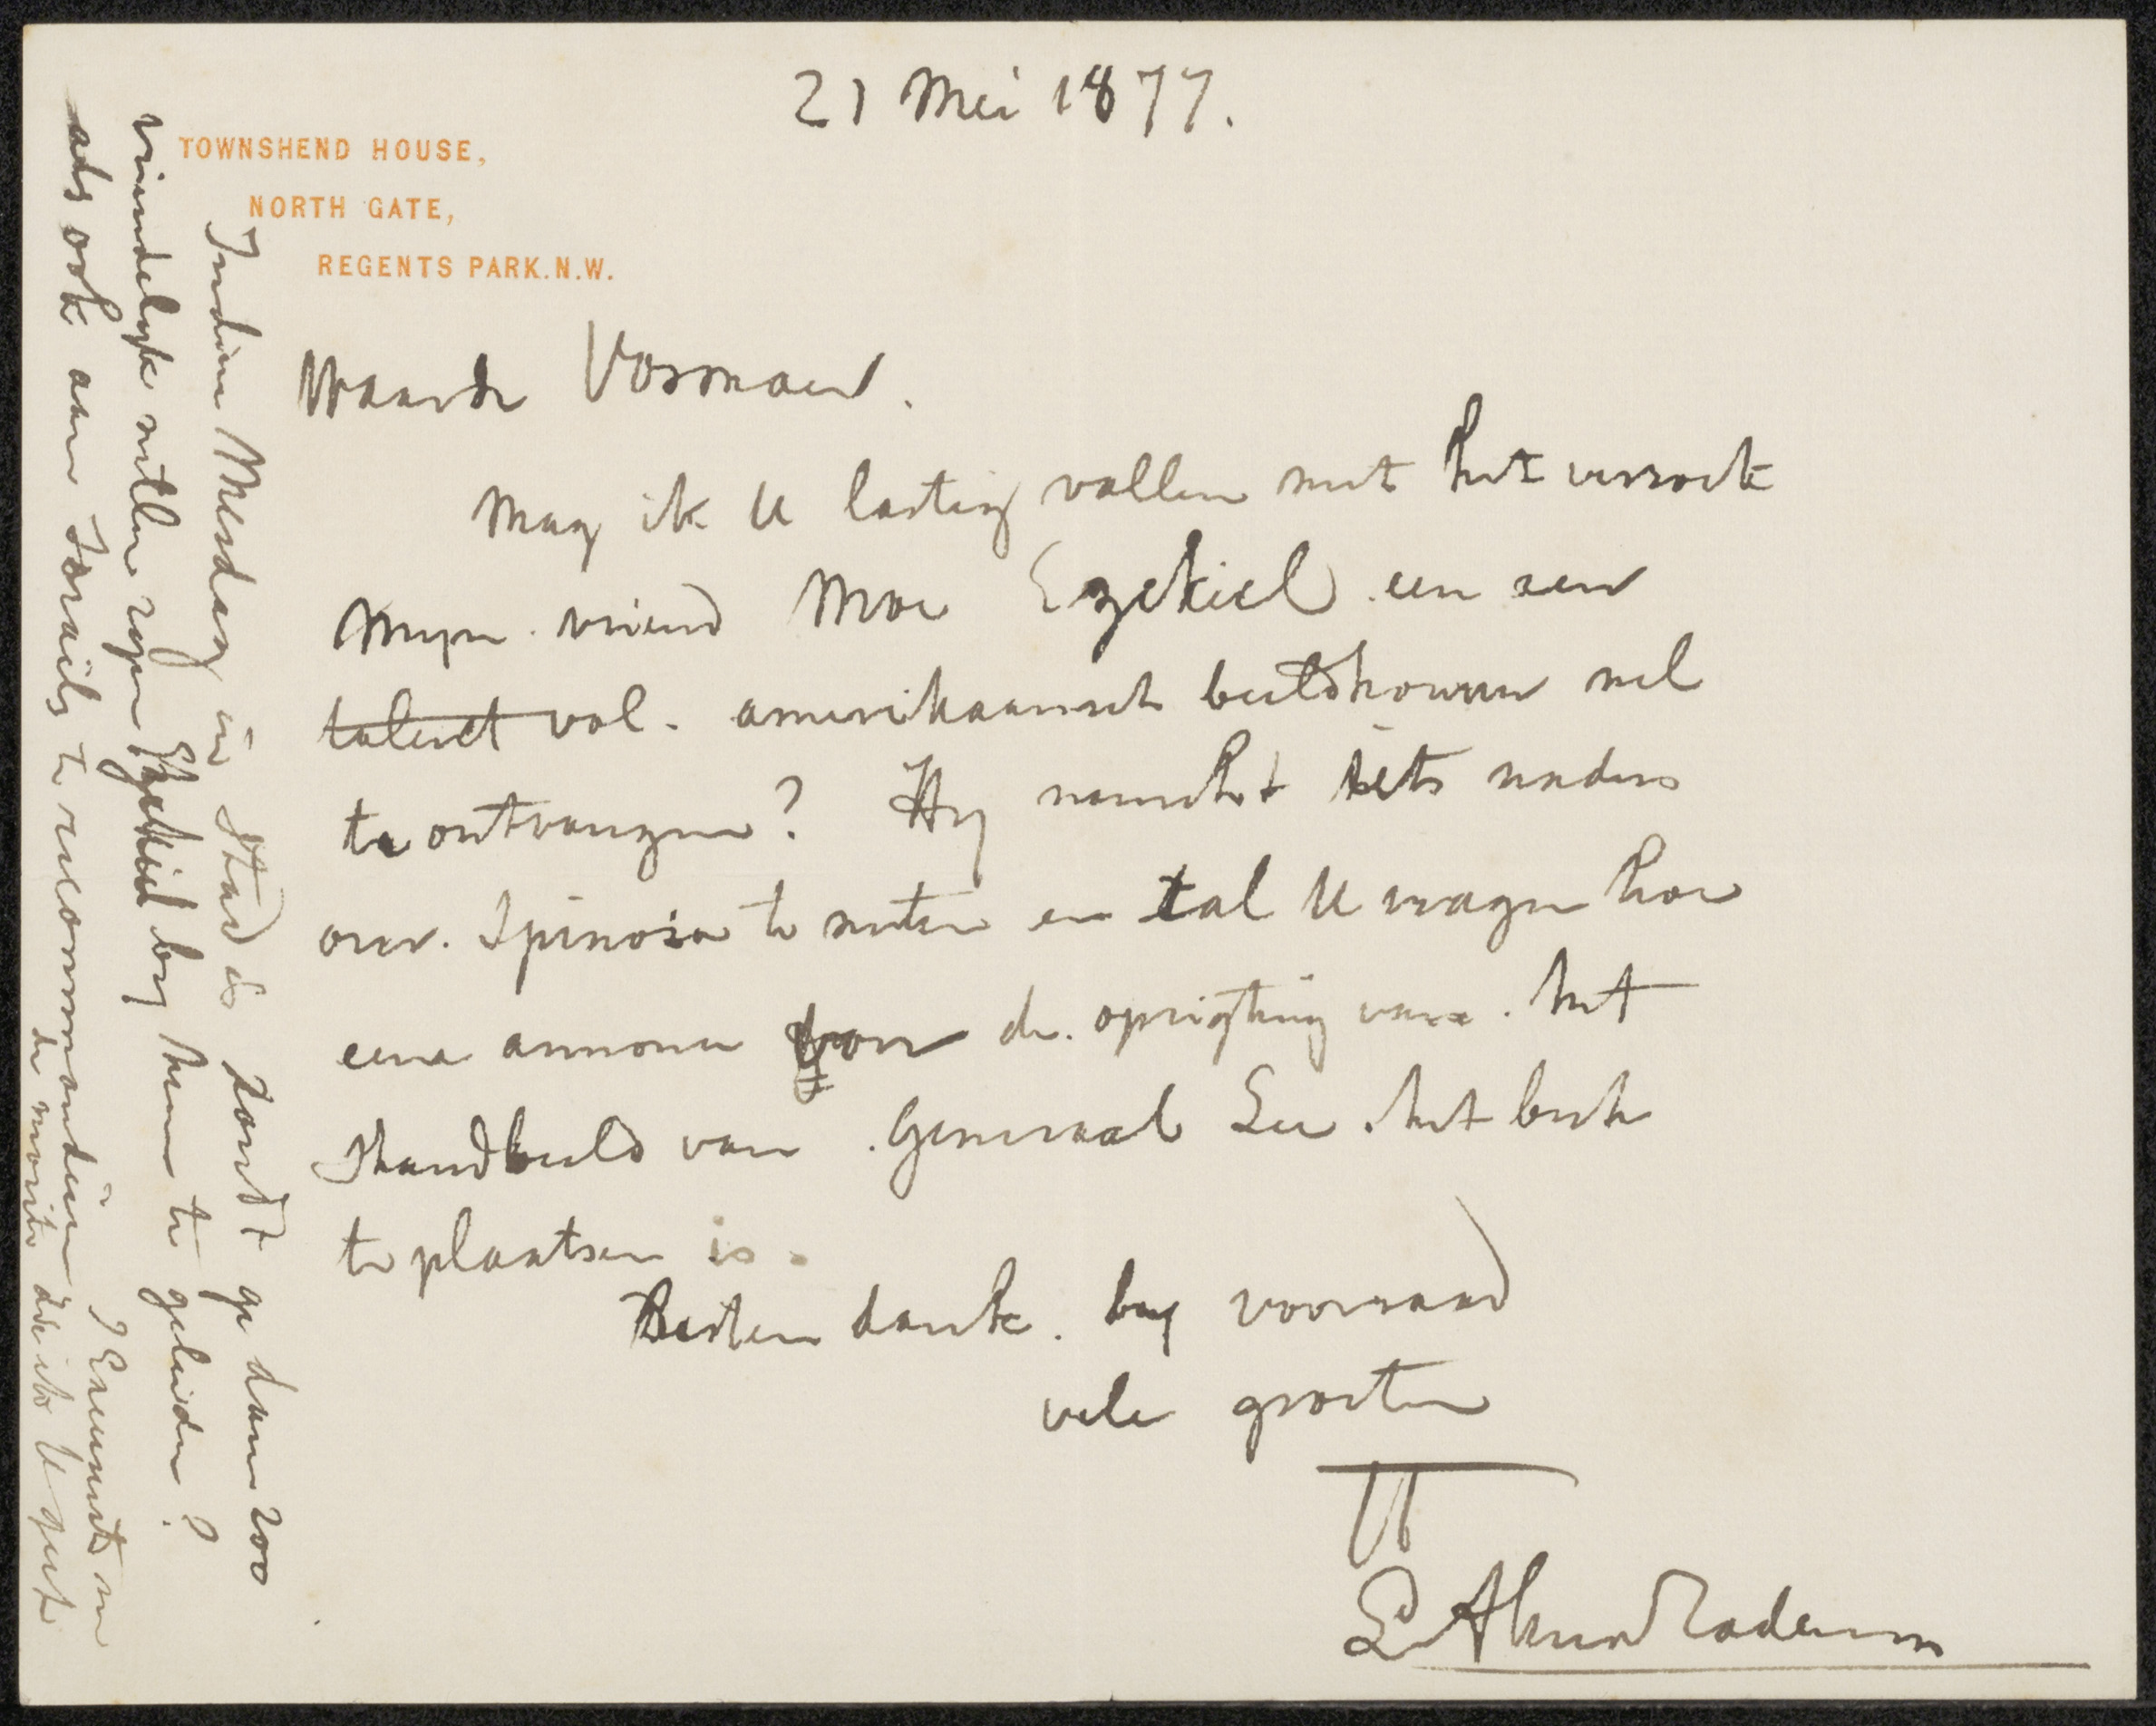 21 Mei 1877.
TOWNSHEND HOUSE,
NORTH GATE,
REGENTS PARK.N.W.
Waarde Vosmaer.
Mag ik U lastig vallen met het verzoek
Myn vriend Moe Ezekiel een zeer
talent vol. amerikaansch beeldhouwer wel
te ontvangen? Hy wenscht iets naders
over. Spinoza te weten en zal U vragen hoe
eene annonce voor de. oprigting van. het
standbeeld van Generaal Lee. het beste
te plaatsen is.
Besten dank. by voorraad
vele groeten
TT
L Alma Tadema
Indien Mesdag in Stad is zoudt ge dan zoo
vriendelyk willen zyn Ezekiel by hem te geleiden?
als ook aan Israëls te recommanderen